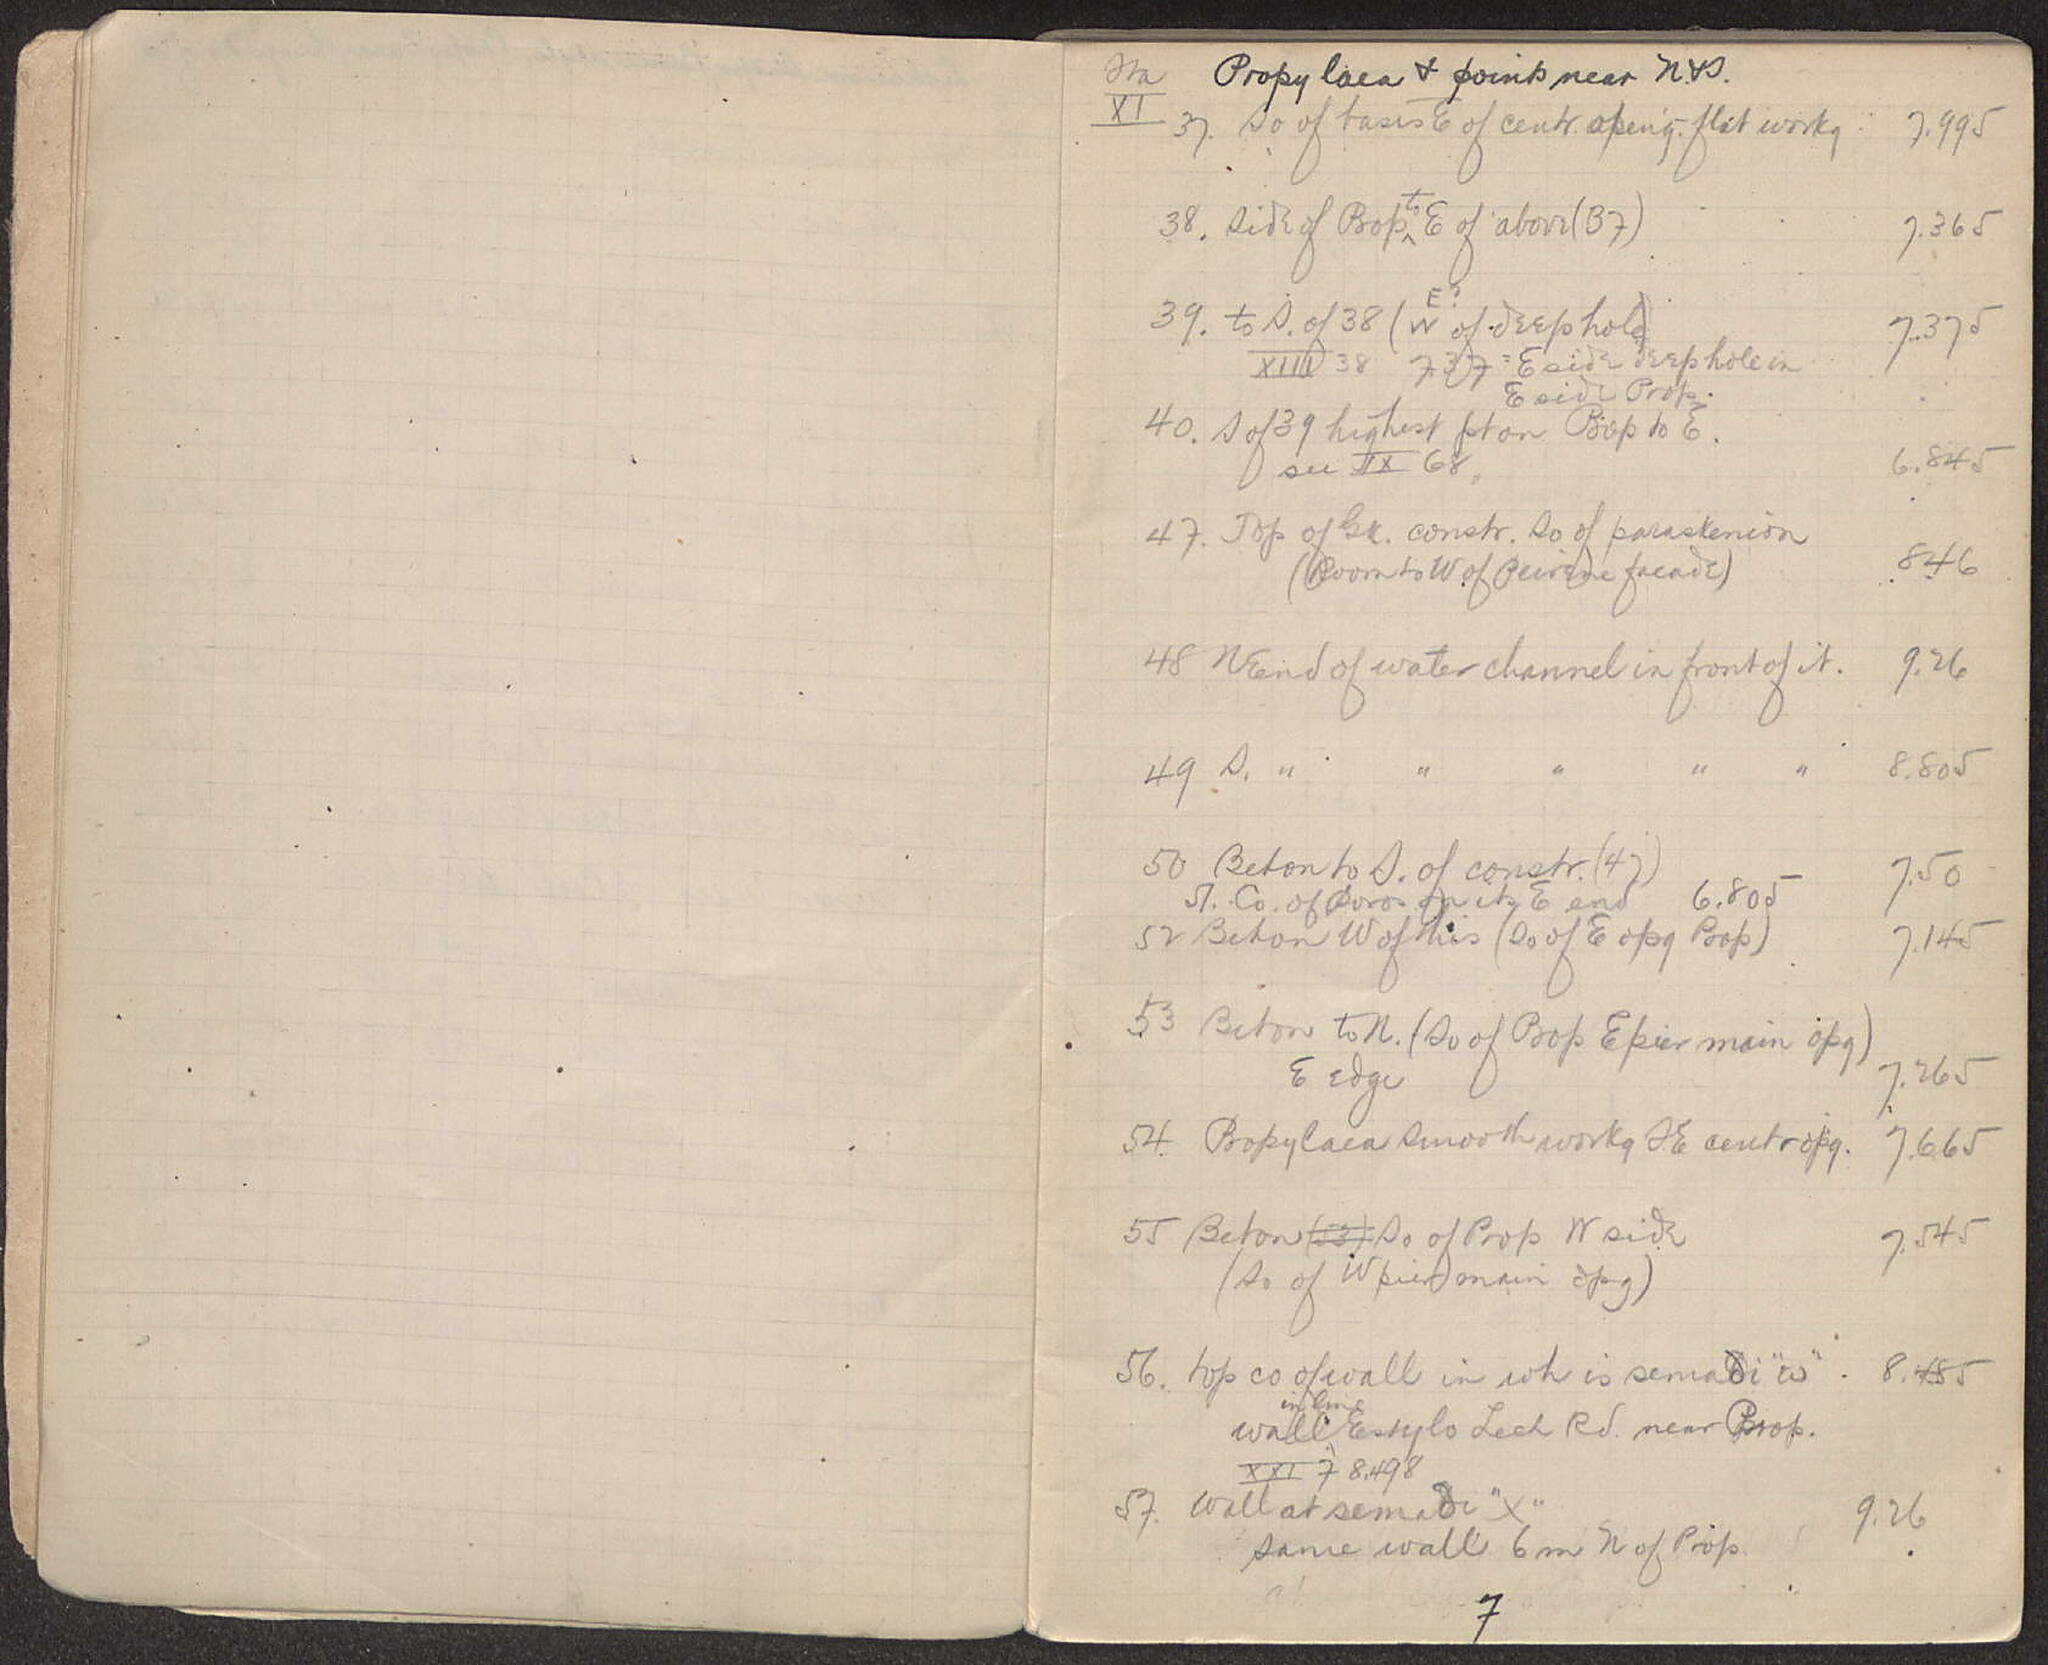 Sta Propylaea & points near N.&S.
XI 37. So of basis E of centr. openg. flat workg 7.995
38. side of Prop to E of above (37) 7.365
E?
39. to S. of 38 (W of deep hole) 7.375
XIII 38 7.37 = E side deep hole in
E side Prop.
40. S of 39 highest pt on Prop to E.
see IX 68. 6.845
47. Top of Gk. constr. So of paraskenion
(Room to W of Peirene facade) 846
48 NE end of water channel in front of it. 9.26
49 S. " " " " " 8.805
50 Beton to S. of constr. (47) 7.50
51. Co. of poros on its E end 6.805
52 Beton W of this (So of E opg Prop) 7.145
53 Beton to N. (So of Prop E pier main opg)
E edge 7.265
54. Propylaea smooth workg SE centr opg. 7.665
55 Beton (53) So of Prop W side 7.545
(So of W pier main opg)
56. top co of wall in wh is semadi "w" . 8.485
in line
wall E stylo Lech Rd. near Prop.
XXI 7 8.498
57. Wall at semadi "X" 9.26
same wall 6 m N of Prop
7